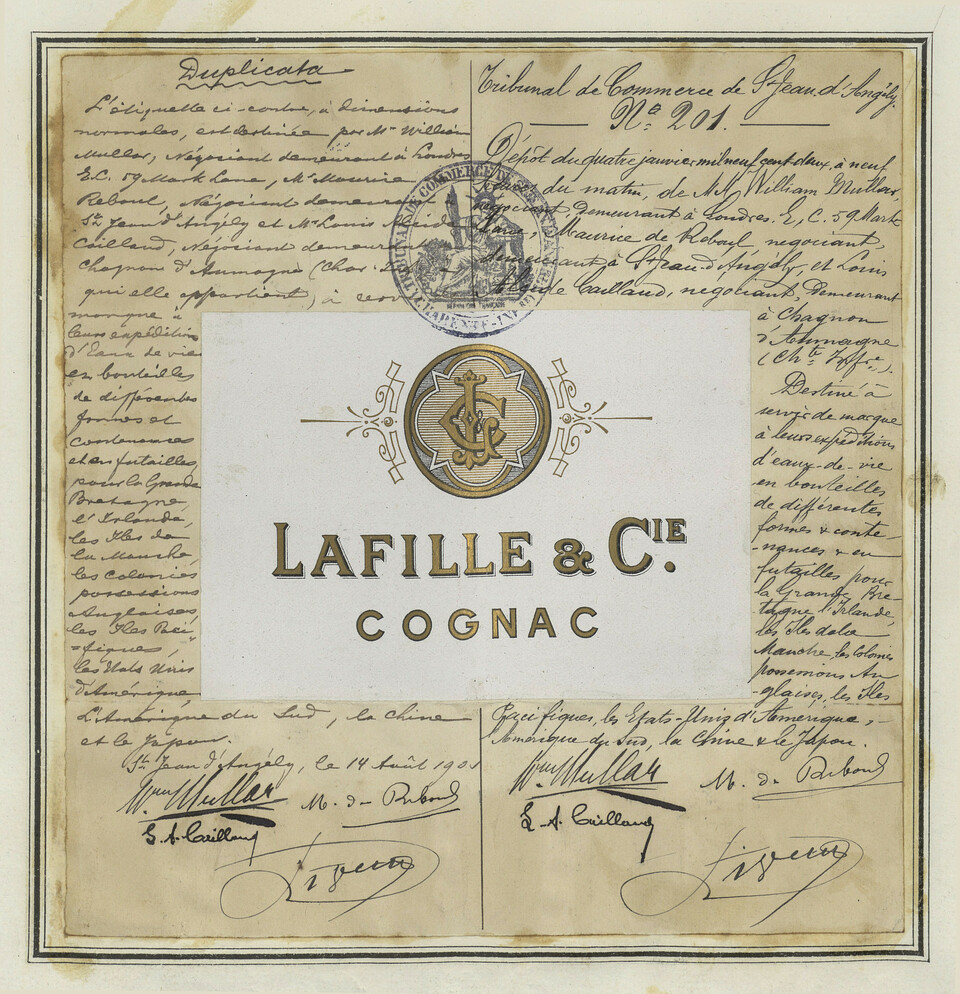 Duplicata
L'étiquette ci-contre, à dimensions
normales, est destinée par Mr William
Mullar, Négociant demeurant à Londres
E.C. 59 Mark Lane, Mr Maurice
Reboul, Négociant demeurant
St Jean d'Angély et Mr Louis
Caillaud, Négociant demeurant
Chagnon d'Aumagne (Char.
qui elle appartient, à servir
marque à
leurs expéditions
d'Eaux de vie
en bouteilles
de différentes
formes et
contenances
et en futailles
pour la Grande
Bretagne,
l'Irlande,
les Iles de
la Manche
les colonies,
possessions
Anglaises,
les Iles Paci-
-fiques,
les Etats Unis
d'Amérique
L'Amérique du Sud, la Chine
et le Japon.
St Jean d'Angély, le 14 Août 1901
Wm Mullar
M. de Reboul
L. A. Caillaud
Tribunal de Commerce de St Jean d'Angély.
No 201.
Dépôt du quatre janvier mil neuf cent deux, à neuf
heures du matin, de MM. William Mullar,
négociant, demeurant à Londres. E, C. 59 Mark
Lane, Maurice de Reboul, negociant,
demeurant à St Jean d'Angély, et Louis
Alcide Caillaud, négociant, demeurant
à Chagnon
d'Aumagne
(Chte Infre).
Destiné à
servir de marque
à leurs expéditions
d'eaux-de-vie
en bouteilles
de différentes
formes & conte
-nances & en
futailles pour
la Grande Bre
tagne l'Irlande,
les Iles de la
Manche, les Colonies
possessions An
-glaises, les Iles
Pacifiques, les Etats-Unis d'Amérique,
l'Amérique du Sud, la Chine & le Japon.
Wm Mullar
M. de Reboul
L. A. Caillaud
LAFILLE & CIE.
COGNAC